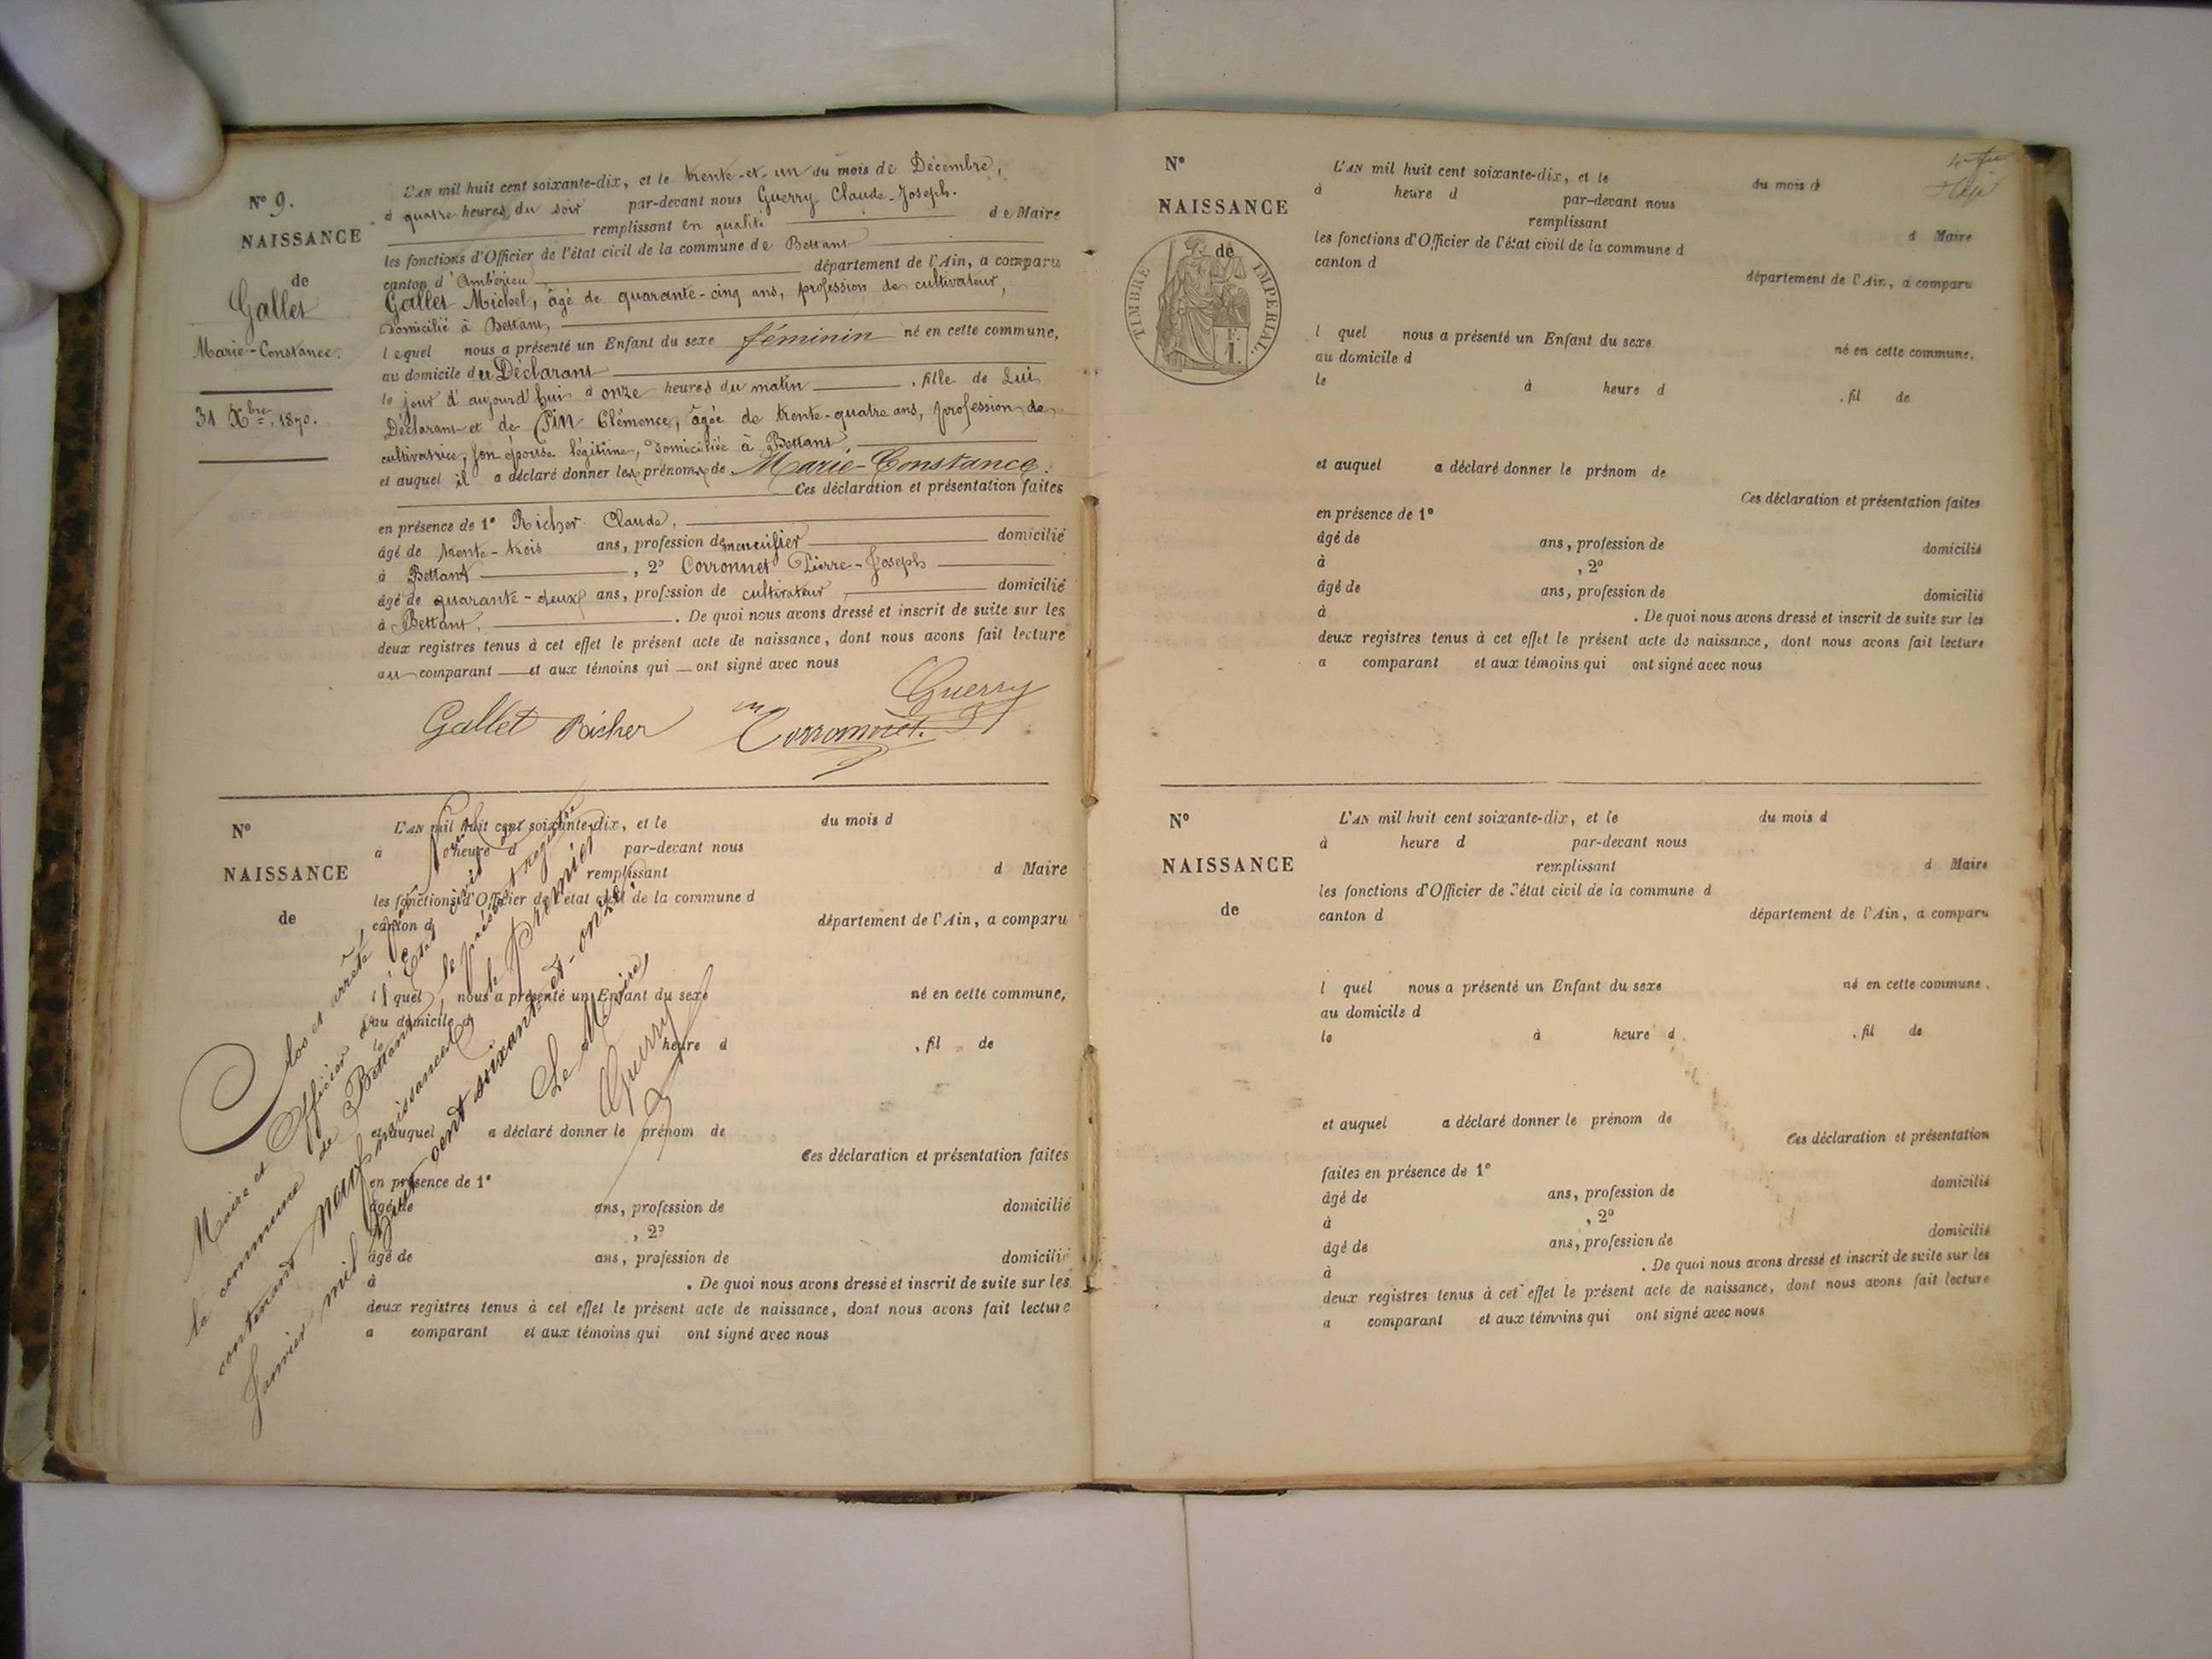 N° 9.
NAISSANCE
de
Gallet
Marie-Constance.
31 Xbre. 1870.
L'AN mil huit cent soixante-dix, et le trente-et-un du mois de Décembre,
à quatre heures du soir par-devant nous Guerry Claude-Joseph.
remplissant en qualité de Maire
les fonctions d'Officier de l'état civil de la commune de Bettant
canton d'Ambérieu département de l'Ain, a comparu
Gallet Michel, âgé de quarante-cinq ans, profession de cultivateur,
domicilié à Bettant,
lequel nous a présenté un Enfant du sexe féminin né en cette commune,
au domicile du Déclarant
le jour d'aujourd'hui à onze heures du matin, fille de Lui
Déclarant et de Pin Clémence, âgée de trente-quatre ans, profession de
cultivatrice, son épouse légitime, domiciliée à Bettant
et auquel il a déclaré donner les prénoms de Marie-Constance.
Ces déclaration et présentation faites
en présence de 1° Richer Claude,
âgé de trente-trois ans, profession de menuisier domicilié
à Bettant, 2° Corronnet Pierre-Joseph
âgé de quarante-deux ans, profession de cultivateur, domicilié
à Bettant. . De quoi nous avons dressé et inscrit de suite sur les
deux registres tenus à cet effet le présent acte de naissance, dont nous avons fait lecture
au comparant et aux témoins qui ont signé avec nous
Guerry
Gallet Richer Corronnet.
N°
NAISSANCE
de
L'AN mil huit cent soixante-dix, et le du mois d
à heure d par-devant nous
remplissant d Maire
les fonctions d'Officier de l'état civil de la commune d
canton d département de l'Ain, a comparu
l quel nous a présenté un Enfant du sexe né en cette commune,
au domicile d
le à heure d , fil de
et auquel a déclaré donner le prénom de
Ces déclaration et présentation faites
en présence de 1°
âgé de ans, profession de domicilié
, 2°
âgé de ans, profession de domicilié
à . De quoi nous avons dressé et inscrit de suite sur les
deux registres tenus à cet effet le présent acte de naissance, dont nous avons fait lecture
a comparant et aux témoins qui ont signé avec nous
Clos et arrêté par Nous
Maire et Officier de l'Etat civil de
la commune de Bettant, le présent registre
contenant neuf naissances, le Premier
Janvier mil huit cent soixante-et-onze.
Le Maire,
Guerry
N°
NAISSANCE
de
TIMBRE IMPERIAL.
1 F.
L'AN mil huit cent soixante-dix, et le du mois d
à heure d par-devant nous
remplissant d Maire
les fonctions d'Officier de l'état civil de la commune d
canton d département de l'Ain, a comparu
l quel nous a présenté un Enfant du sexe né en cette commune,
au domicile d
le à heure d , fil de
et auquel a déclaré donner le prénom de
Ces déclaration et présentation faites
en présence de 1°
âgé de ans, profession de domicilié
à , 2°
âgé de ans, profession de domicilié
à . De quoi nous avons dressé et inscrit de suite sur les
deux registres tenus à cet effet le présent acte de naissance, dont nous avons fait lecture
a comparant et aux témoins qui ont signé avec nous
N°
NAISSANCE
de
L'AN mil huit cent soixante-dix, et le du mois d
à heure d par-devant nous
remplissant d Maire
les fonctions d'Officier de l'état civil de la commune d
canton d département de l'Ain, a comparu
l quel nous a présenté un Enfant du sexe né en cette commune,
au domicile d
le à heure d , fil de
et auquel a déclaré donner le prénom de
Ces déclaration et présentation
faites en présence de 1° domicilié
âgé de ans, profession de
à , 2°
âgé de ans, profession de domicilié
à . De quoi nous avons dressé et inscrit de suite sur les
deux registres tenus à cet effet le présent acte de naissance, dont nous avons fait lecture
a comparant et aux témoins qui ont signé avec nous